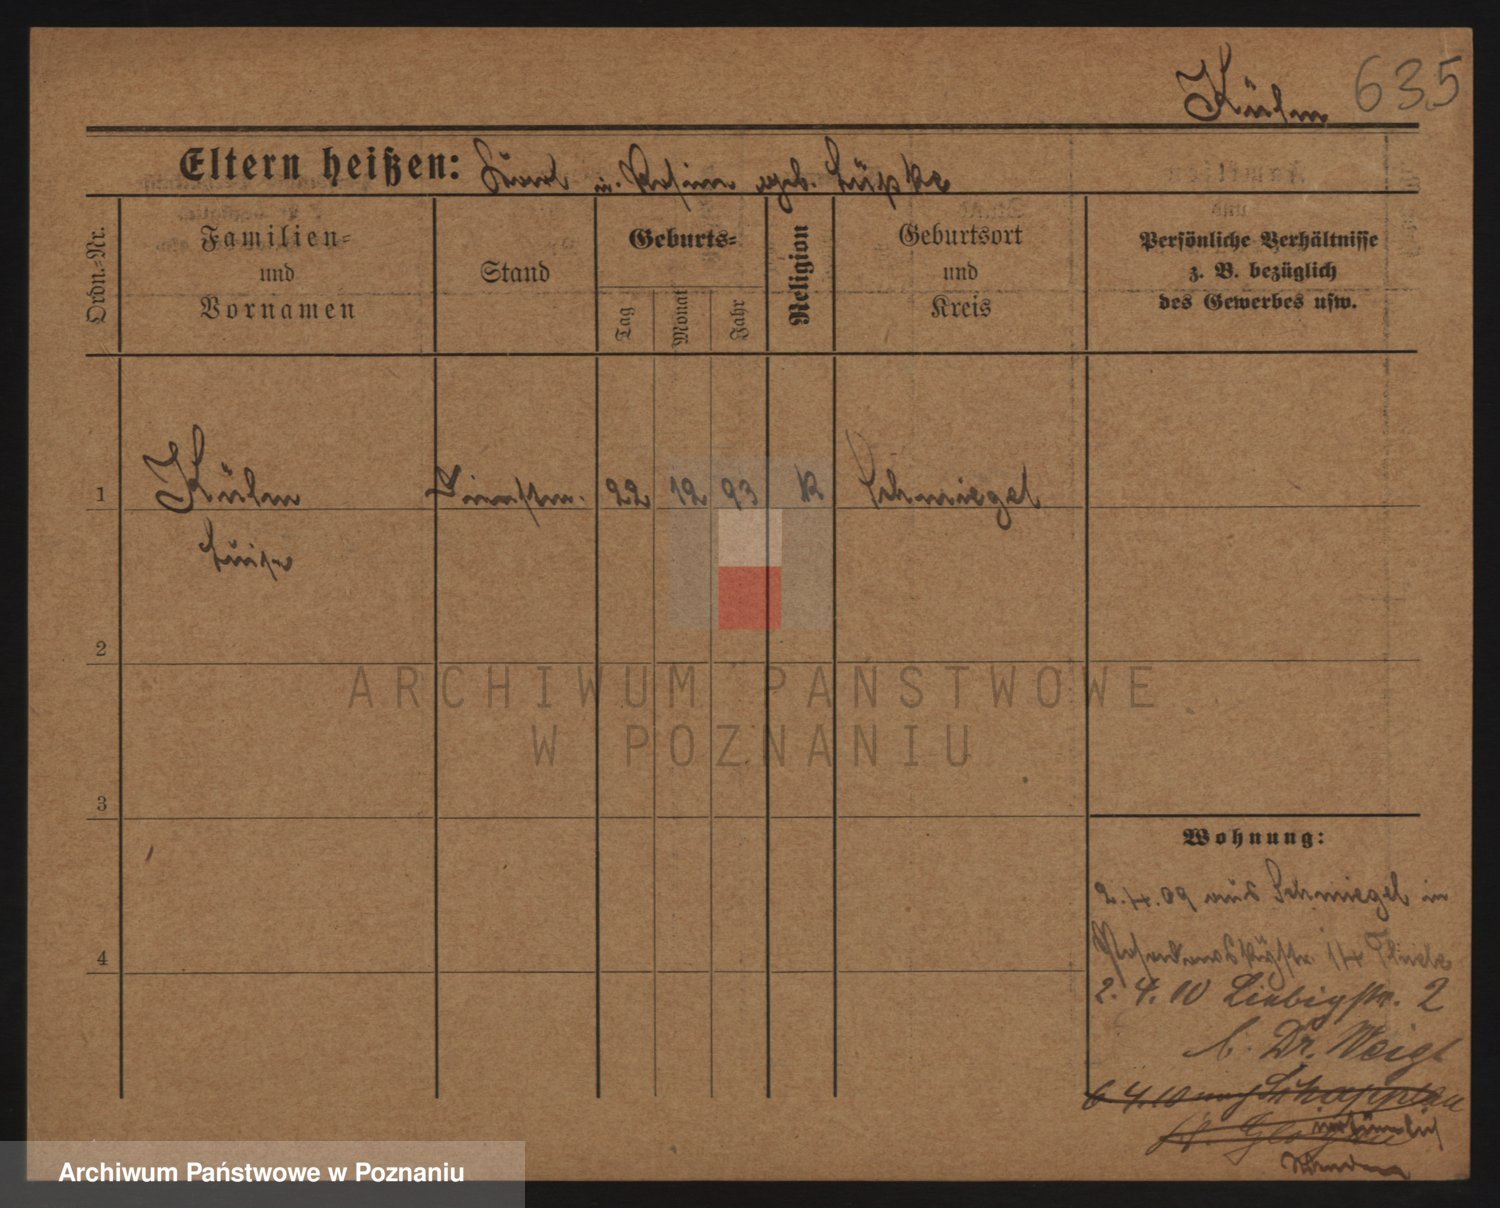 Kühn 635
Eltern heißen: Karl u. Rosina geb. Lüpke
Ordn.=Nr.
Familien=
und
Vornamen
Stand
Geburts=
Tag
Monat
Jahr
Religion
Geburtsort
und
Kreis
Persönliche Verhältnisse
z. B. bezüglich
des Gewerbes usw.
1 Kühn Dienstm. 22 12 93 K Schmiegel
Luise
2
3
4
ARCHIWUM PAŃSTWOWE
W POZNANIU
Wohnung:
2.4.09 aus Schmiegel in
14
2. 4. 10 Liebigstr. 2
b. Dr. Weigt
6 4.10 nach
Kr. Glogau irrtümlich
Archiwum Państwowe w Poznaniu